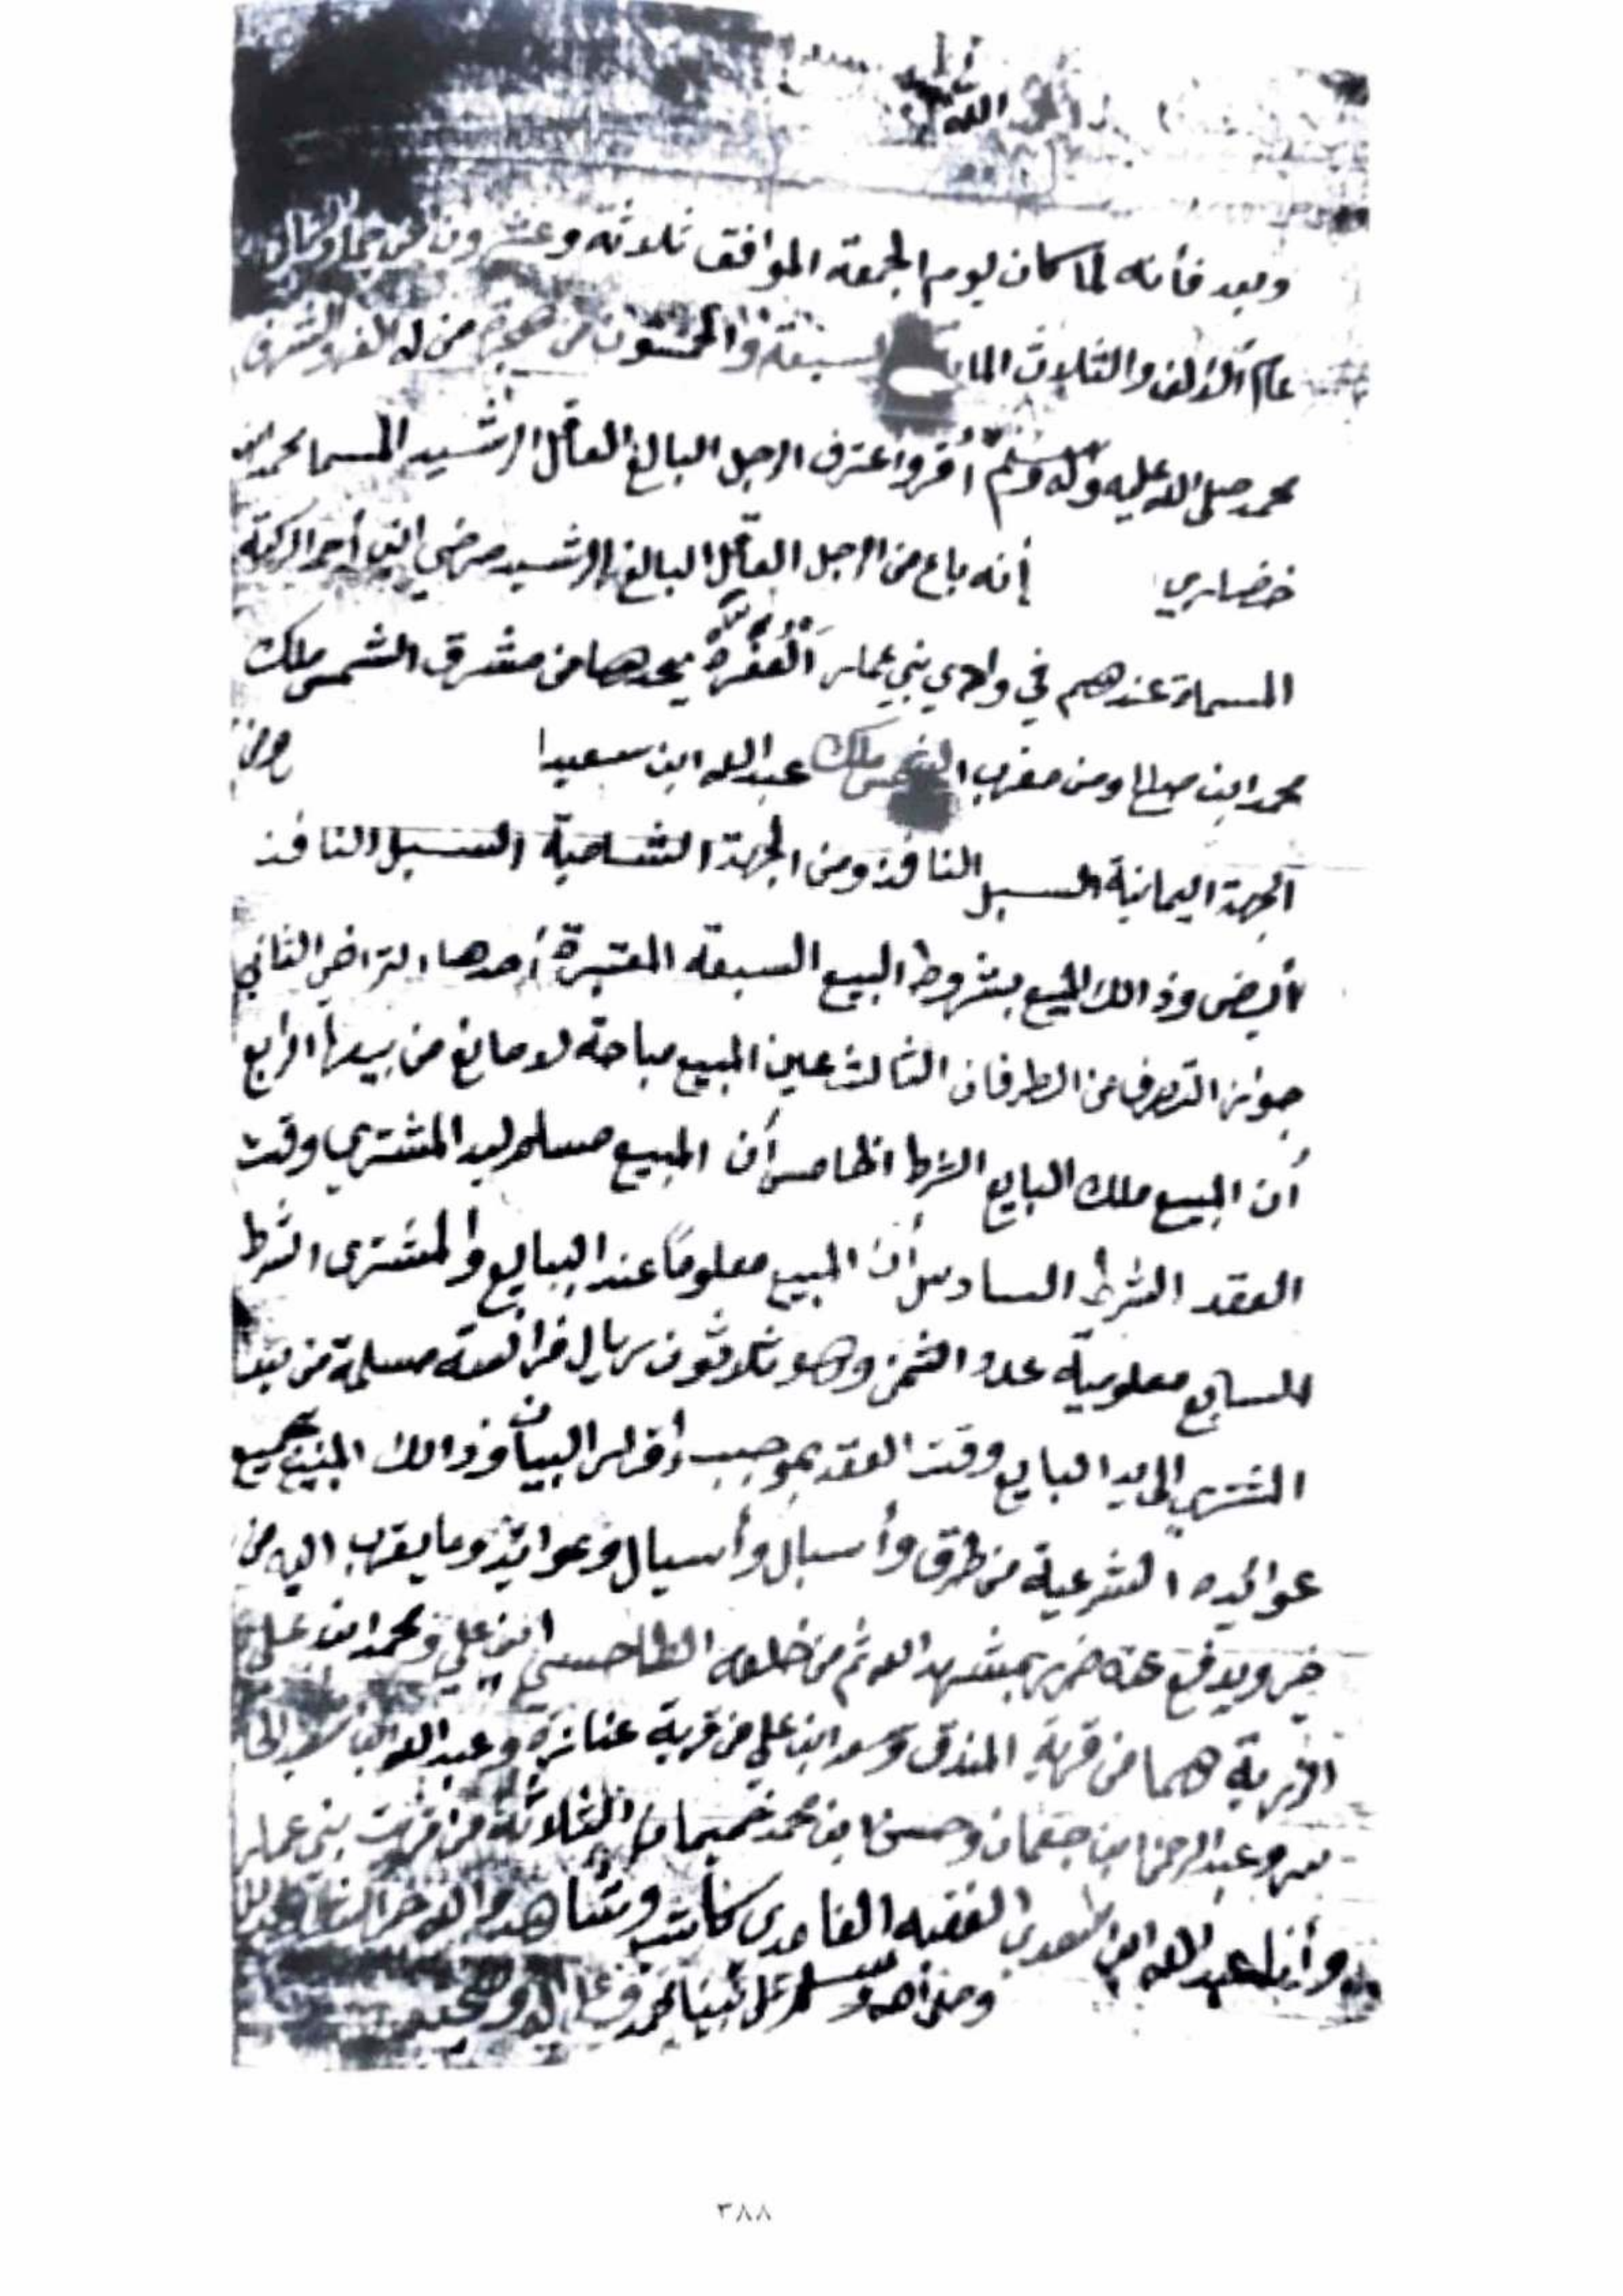 الله
وبعد فأنه لما كان يوم الجمعة الموافق ثلاثة وعشرون من
عام الالف والثلاث الماية السبعة والخمسون من هجرة من له العز والشرف
محمد صلى الله عليه وآله وسلم أقر واعترف الرجل البالغ العاقل الرشيد المسما محمد ابن
خضاري إنه باع من الرجل العاقل البالغ الرشيد مرضي ابن أحمد الركبة
المسماة عندهم في وادي بني عمار يحدها من مشرق الشمس ملك
محمد ابن صالح ومن مغرب الشمس ملك عبدالله ابن سعيد ومن
الجهة اليمانية السبل النافذ ومن الجهة الشامية السبل النافذ
أيضى وذالك البيع بشروط البيع السبعة المعتبرة أحدها التراضي الثاني
جواز التصرف من الطرفان الثالث عين المبيع مباحة لا مانع من بيعها الرابع
أن المبيع ملك البايع الشرط الخامس أن المبيع مسلم ليد المشتري وقت
العقد الشرط السادس أن المبيع معلوماً عند البايع والمشترى الشرط
السابع معلومية عدد الثمن وهو ثلاثون ريال فرانصه مسلمة من يد
المشتري الى يد البايع وقت العقد بموجب إقرار البيان وذالك المبيع بجميع
عوائيده الشرعية من طرق وأسبال وأسيال وعوايد وما يقرب اليه من
خير ويدفع عنه ضرر بمشهد الله ثم من خلقه حسن ابن علي ومحمد ابن علي
هما من قرية المندق وسعد ابن علي من قرية عنازة وعبدالله ابن
وعبد الرحمن ابن جمعان وحسن ابن محمد الثلاثة من قرية بني عمار
وأنا عبدالله ابن الفقيه الغامدي كاتب وشاهد والله خير الشاهدين
وصلى الله وسلم على نبينا محمد وعلى آله وصحبه
٣٨٨